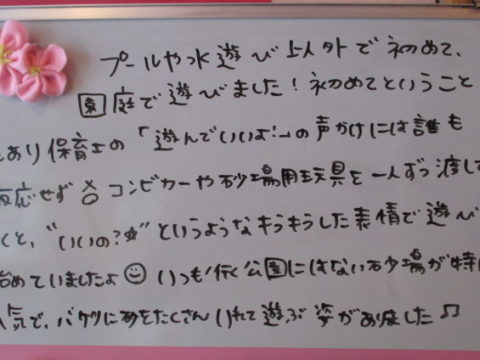 プールや水遊び以外で初めて、
園庭で遊びました！初めてということ
あり保育士の「遊んでいいよ!」の声かけには誰も
反応せず コンビカーや砂場用玩具を一人ずつ渡して
くと、"いいの?☆"というようなキラキラした表情で遊び
始めていましたよ☺ いつも行く公園にはない砂場が特に
人気で、バケツに砂をたくさんいれて遊ぶ姿がありました♫